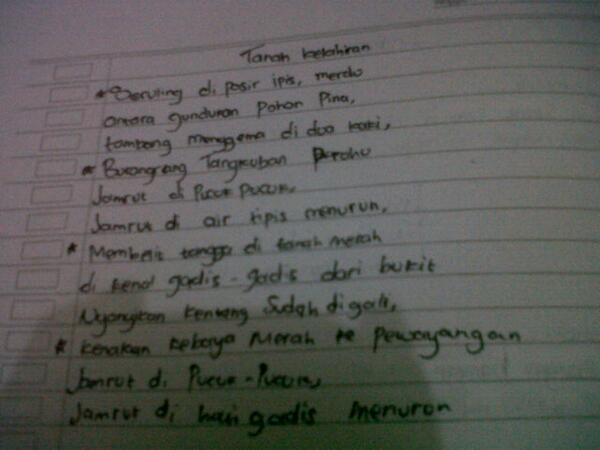 Tanah kelahiran
* Seruling di pasir ipis, merdu
antara gundunan Pohon Pina,
tembang menggema di dua kaki,
* Burangrang Tangkuban Prahu
Jamrut di Pucuk Pucuk,
Jamrut di air tipis menurun,
* Membelit tangga di tanah merah
di kenal gadis-gadis dari bukit
Nyanyikan kentang Sudah digali,
* kenakan kebaya Merah ke Pewayangan
Jamrut di Pucuk-Pucuk,
Jamrut di hari gadis menurun